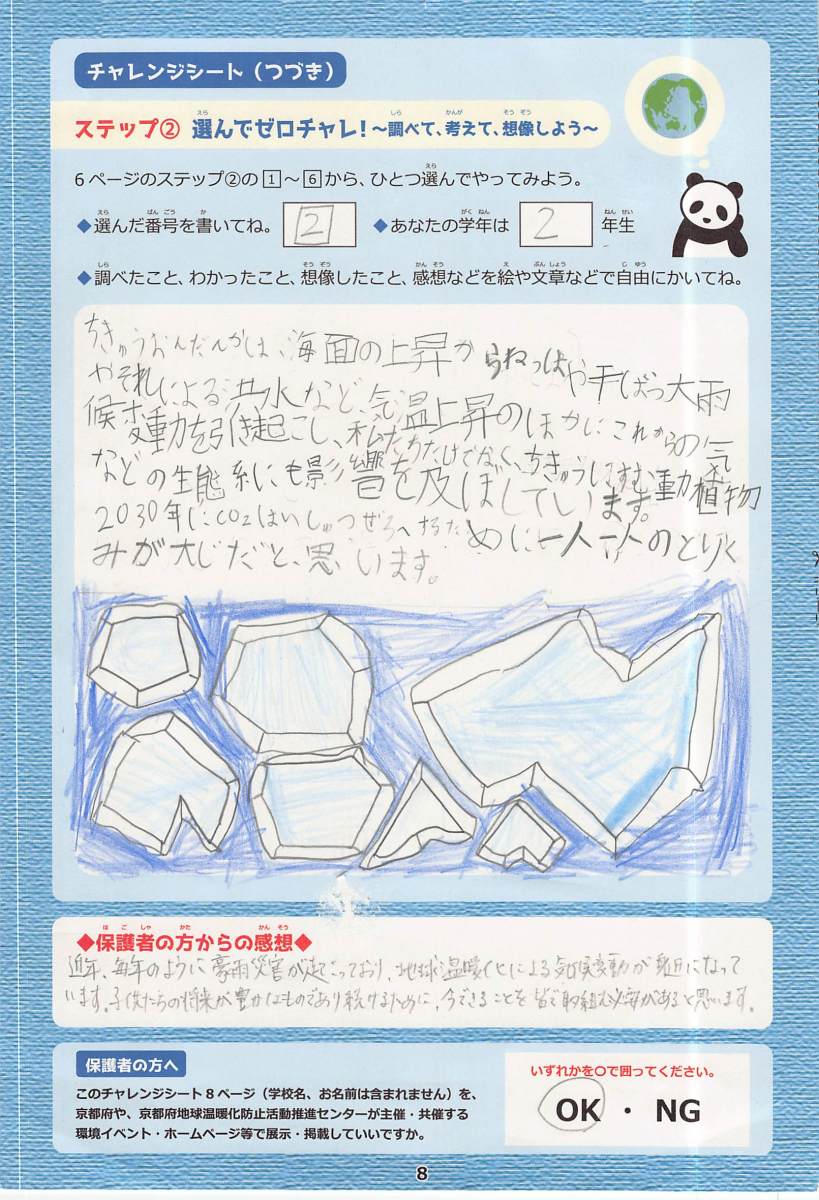 チャレンジシート（つづき）
ステップ② 選んでゼロチャレ！～調べて、考えて、想像しよう～
6ページのステップ②の1～6から、ひとつ選んでやってみよう。
◆選んだ番号を書いてね。 2 ◆あなたの学年は 2 年生
◆調べたこと、わかったこと、想像したこと、感想などを絵や文章などで自由にかいてね。
ちきゅうおんだんかは、海面の上昇か らねっぱや干ばつ大雨
やそれによる洪水など、気温上昇のほかにこれからの気
候変動を引き起こし、私たちだけでなく、ちきゅうにすむ動植物
などの生能系にも影響を及ぼしています。
2030年にCO2はいしゅつぜろへするために一人一人のとりく
みが大じだと、思います。
◆保護者の方からの感想◆
近年、毎年のように豪雨災害が起こっており、地球温暖化による気候変動が身近になって
います。子供たちの将来が豊かなものであり続けるために、今できることを皆で取組む必要があると思います。
保護者の方へ
このチャレンジシート8ページ（学校名、お名前は含まれません）を、
京都府や、京都府地球温暖化防止活動推進センターが主催・共催する
環境イベント・ホームページ等で展示・掲載していいですか。
いずれかを〇で囲ってください。
OK ・ NG
8